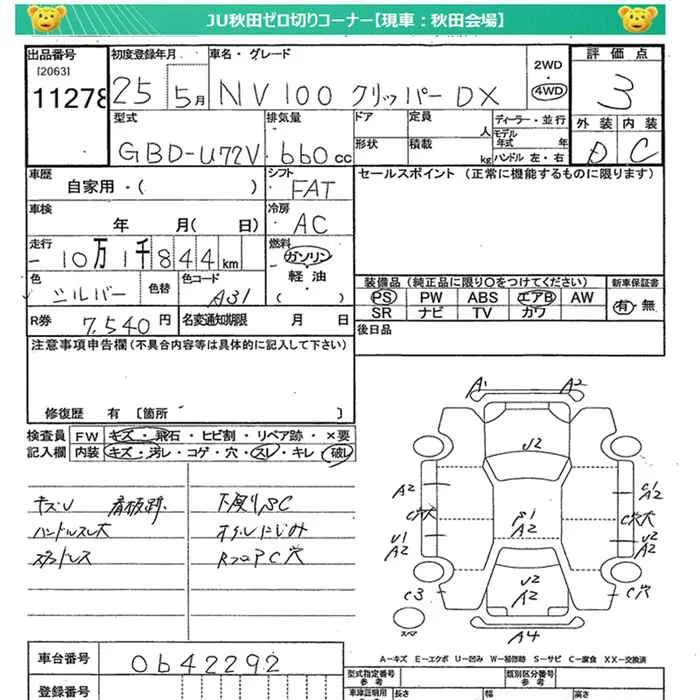 JU秋田ゼロ切りコーナー【現車：秋田会場】
出品番号 初度登録年月 車名・グレード 2WD 4WD 評価点
[2063]
11278 25 5月 NV100 クリッパー DX 3
型式 排気量 ドア 定員 人 ディーラー・並行 外装 内装
GBD-U72V 660cc 形状 積載 kg モデル年式 年 ハンドル 左・右 D C
車歴 シフト セールスポイント (正常に機能するものに限ります)
自家用・( ) FAT
車検 冷房
年 月( 日) AC
走行 燃料
10万1千844km ガソリン
色 色替 色コード 軽油 装備品 (純正品に限り○をつけてください) 新車保証書
シルバー A31 ( ・ ) PS PW ABS エアB AW 有・無
SR ナビ TV カワ
R券 7,540円 名変通知期限 月 日 後日品
注意事項申告欄(不具合内容等は具体的に記入して下さい)
修復歴 有 [箇所 ]
検査員 FW キズ・飛石・ヒビ割・リペア跡・×要
記入欄 内装 キズ・汚レ・コゲ・穴・スレ・キレ・破レ
キズU 看板跡 下廻りSC
ハンドルスレ大 オイルにじみ
スタッドレス RフロアC穴
A1 A2
U2
A2 C1/2
C穴大 S1 A2 C穴大
U1 A2 U2 A2
C3 U2 A2 C穴
スペア A4
A-キズ E-エクボ U-凹み W-補修跡 S-サビ C-腐食 XX-交換済
車台番号 0642292 型式指定番号 参考 類別区分番号 参考
登録番号 車検証期用 参考 長さ 幅 高さ